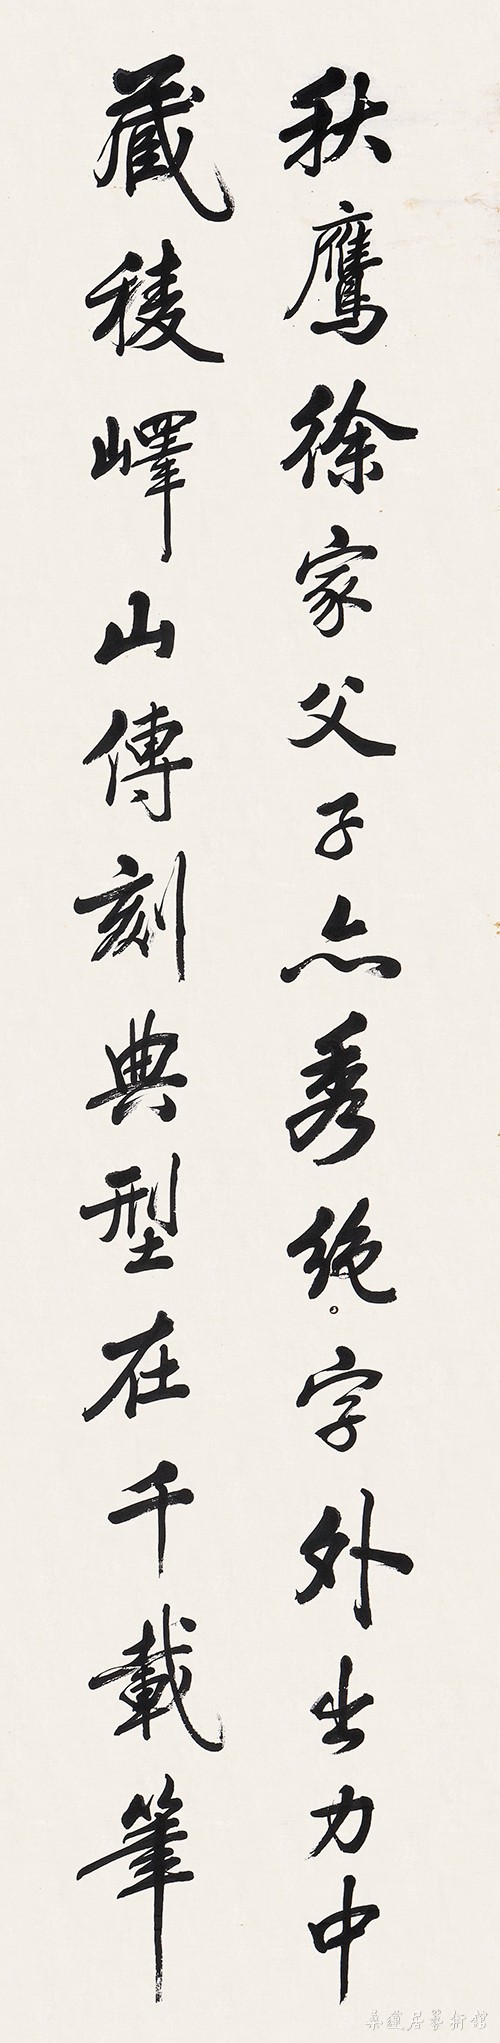 秋鷹徐家父子亦秀絕字外出力中
藏稜嶧山傳刻典型在千載筆
桑蓮居藝術館